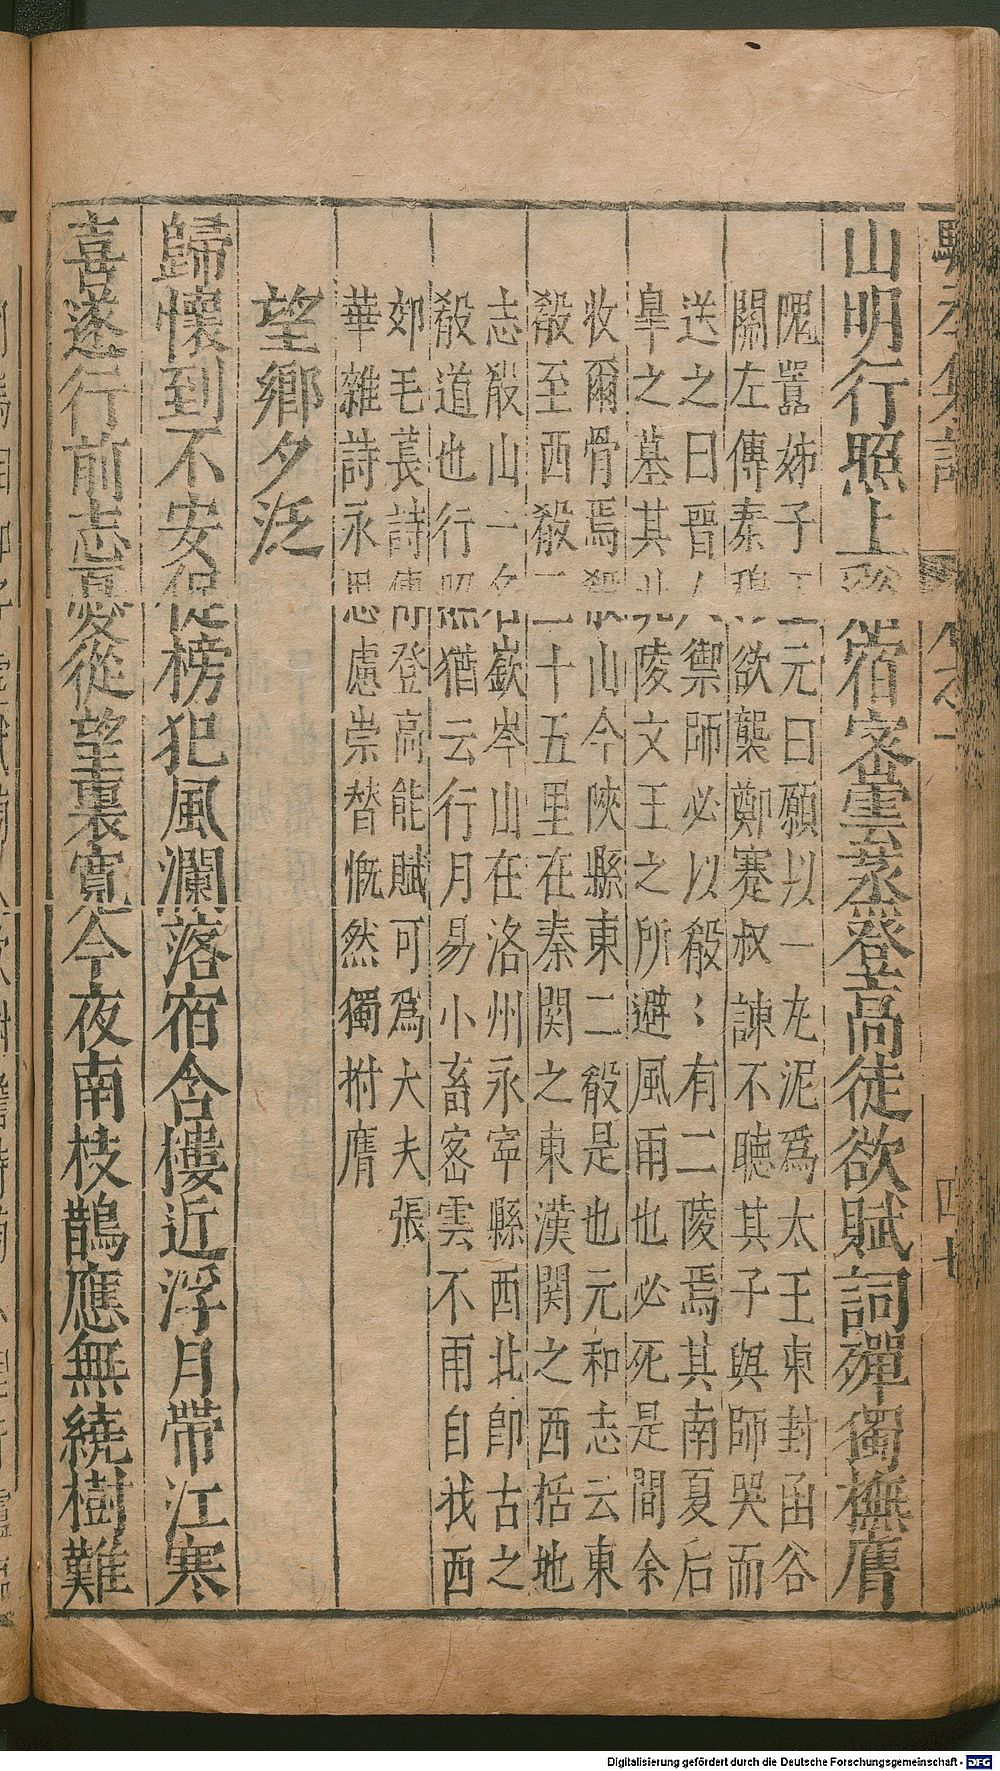 山明行照上谿宿密雲蒸登高徒欲賦詞殫獨撫膺
隗囂姊子王元曰願以一丸泥爲太王東封函谷
關左傳秦穆公欲襲鄭蹇叔諫不聴其子與師哭而
送之曰晋人禦師必以殽殽有二陵焉其南夏后
皐之墓其北陵文王之所避風雨也必死是間余
收爾骨焉殽山今陜縣東二殽是也元和志云東
殽至西殽三十五里在秦関之東漢関之西括地
志殽山一名嶔岑山在洛州永寜縣西北即古之
殽道也行照猶云行月易小畜密雲不雨自我西
郊毛萇詩傳登高能賦可爲大夫張
華雜詩永思慮崇替慨然獨拊膺
望鄉夕泛
歸懷到不安促榜犯風瀾落宿含樓近浮月帶江寒
喜逐行前志憂從望裏寬今夜南枝鵲應無繞樹難
四七
Digitalisierung gefördert durch die Deutsche Forschungsgemeinschaft - DFG